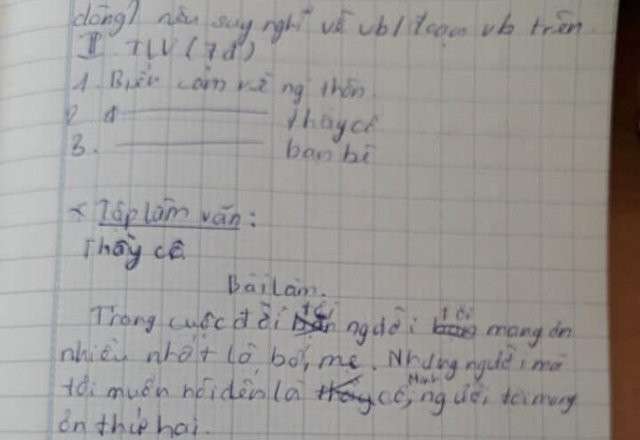 dòng) nêu suy nghĩ về vb/đoạn vb trên.
II. TLV (7đ)
1. Biểu cảm về ng thân.
2. thầy cô
3. bạn bè
* Tập làm văn:
Thầy cô
Bài làm.
Trong cuộc đời tôi người tôi mang ơn
nhiều nhất là bố, mẹ. Nhưng người mà
tôi muốn nói đến là cô, người tôi mang
ơn thứ hai.